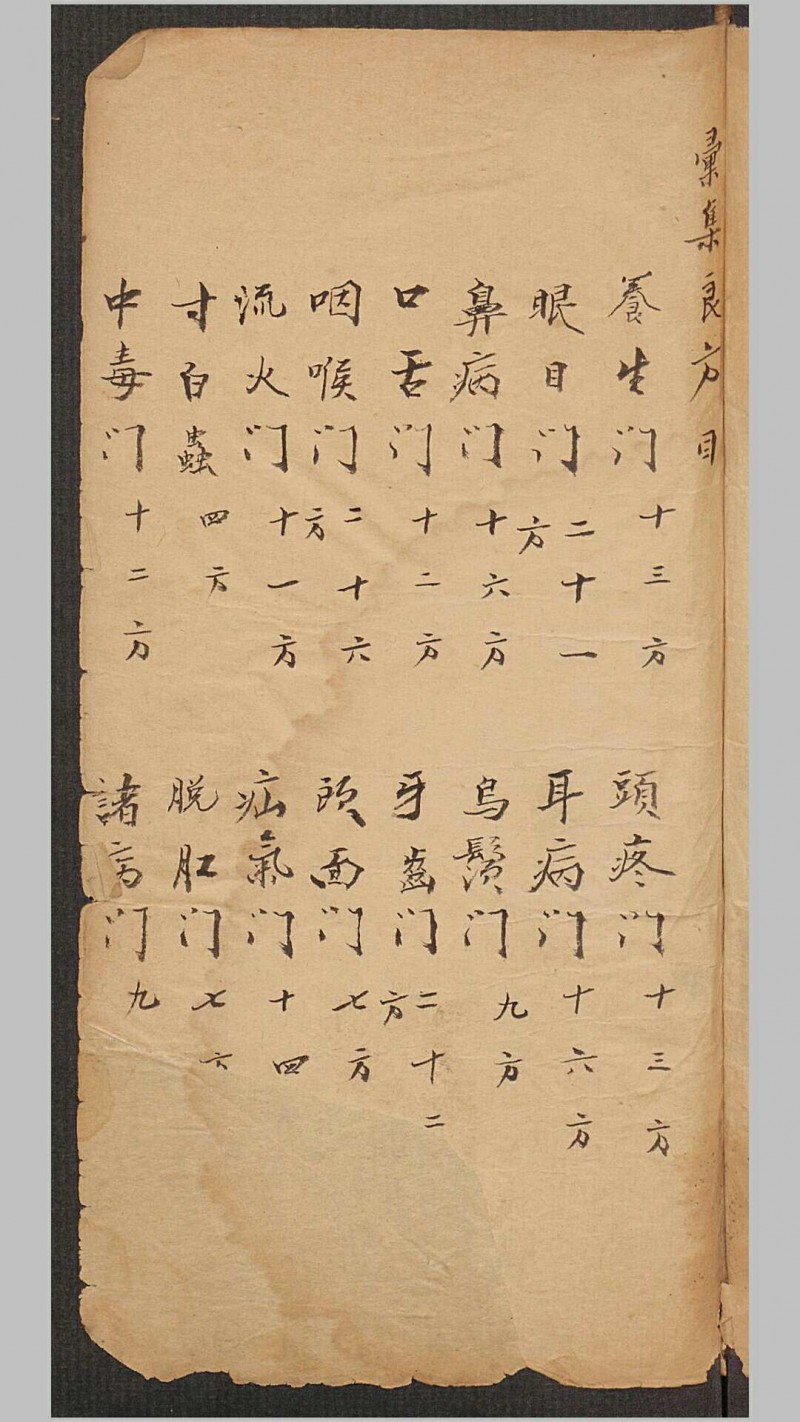 彙集良方目
養生门 十三方 頭疼门 十三方
眼目门 二十一方 耳病门 十六方
鼻病门 十六方 烏鬚门 九方
口舌门 十二方 牙齒门 二十二方
咽喉门 二十六方 頭面门 七方
流火门 十一方 疝氣门 十四
寸白蟲 四方 脱肛门 七
中毒门 十二方 諸门 九